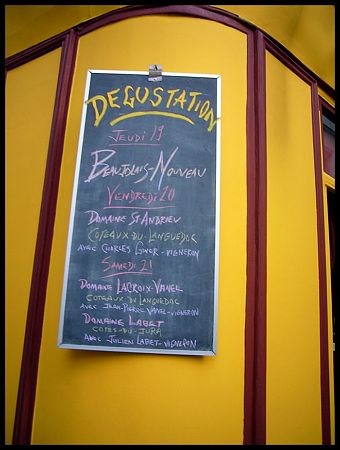 DEGUSTATION
JEUDI 19
BEAUJOLAIS-NOUVEAU
VENDREDI 20
DOMAINE ST ANDRIEU
COTEAUX-DU-LANGUEDOC
AVEC CHARLES GINER-VIGNERON
SAMEDI 21
DOMAINE LACROIX-VANEL
COTEAUX DU LANGUEDOC
AVEC JEAN-PIERRE VANEL-VIGNERON
DOMAINE LABET
COTES-DU-JURA
AVEC JULIEN LABET-VIGNERON